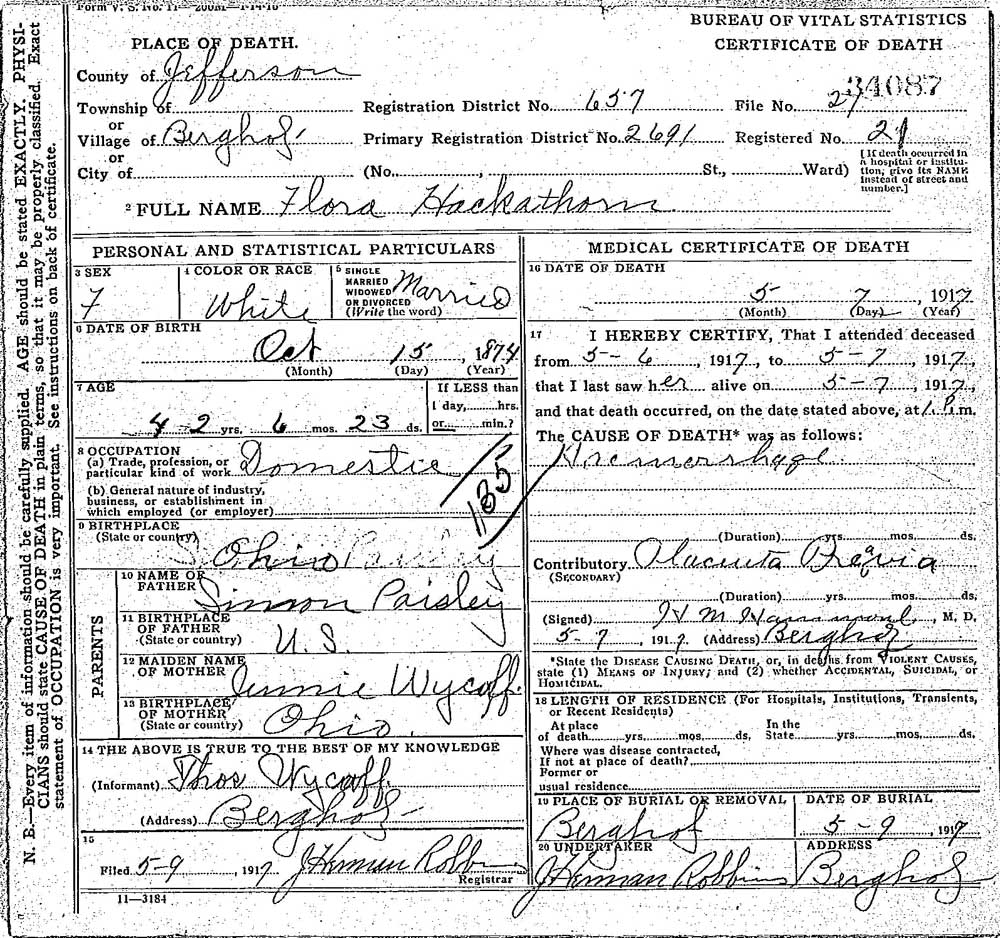 Form V. S. No. 11—200M—1-14-16
BUREAU OF VITAL STATISTICS
PLACE OF DEATH.
CERTIFICATE OF DEATH
County of Jefferson
34087
Township of
Registration District No. 657
File No. 27
or
Village of Bergholz
Primary Registration District No. 2691
Registered No. 21
or
City of
(No. , St., Ward)
[If death occurred in a hospital or institution, give its NAME instead of street and number.]
2 FULL NAME Flora Hackathorn
PERSONAL AND STATISTICAL PARTICULARS
3 SEX
F
4 COLOR OR RACE
White
5 SINGLE MARRIED WIDOWED OR DIVORCED (Write the word)
Married
6 DATE OF BIRTH
Oct 15, 1874
(Month) (Day) (Year)
7 AGE
42 yrs. 6 mos. 23 ds.
If LESS than
1 day, hrs.
or min.?
8 OCCUPATION
(a) Trade, profession, or
particular kind of work Domestic
(b) General nature of industry,
business, or establishment in
which employed (or employer)
135
9 BIRTHPLACE
(State or country)
Ohio
PARENTS
10 NAME OF FATHER
Simon Paisley
11 BIRTHPLACE OF FATHER (State or country)
U.S.
12 MAIDEN NAME OF MOTHER
Jennie Wycoff
13 BIRTHPLACE OF MOTHER (State or country)
Ohio.
14 THE ABOVE IS TRUE TO THE BEST OF MY KNOWLEDGE
(Informant) Thos Wycoff
(Address) Bergholz
15
Filed 5-9, 1917 J Herman Robbins
Registrar
11—3184
MEDICAL CERTIFICATE OF DEATH
16 DATE OF DEATH
5 7, 1917
(Month) (Day) (Year)
17 I HEREBY CERTIFY, That I attended deceased
from 5-6, 1917, to 5-7, 1917,
that I last saw her alive on 5-7, 1917,
and that death occurred, on the date stated above, at 1 P. m.
The CAUSE OF DEATH* was as follows:
Hremorrhage
(Duration) yrs. mos. ds.
Contributory Placenta Previa
(SECONDARY)
(Duration) yrs. mos. ds.
(Signed) H M Hammond, M. D.
5-7, 1917. (Address) Bergholz
*State the DISEASE CAUSING DEATH, or, in deaths from VIOLENT CAUSES,
state (1) MEANS OF INJURY; and (2) whether ACCIDENTAL, SUICIDAL, or
HOMICIDAL.
18 LENGTH OF RESIDENCE (For Hospitals, Institutions, Transients,
or Recent Residents)
At place In the
of death yrs. mos. ds. State yrs. mos. ds.
Where was disease contracted,
If not at place of death?
Former or
usual residence
19 PLACE OF BURIAL OR REMOVAL
Bergholz
DATE OF BURIAL
5-9, 1917
20 UNDERTAKER
J Herman Robbins
ADDRESS
Bergholz
N. B.—Every item of information should be carefully supplied. AGE should be stated EXACTLY. PHYSI-
CIANS should state CAUSE OF DEATH in plain terms, so that it may be properly classified. Exact
statement of OCCUPATION is very important. See instructions on back of certificate.